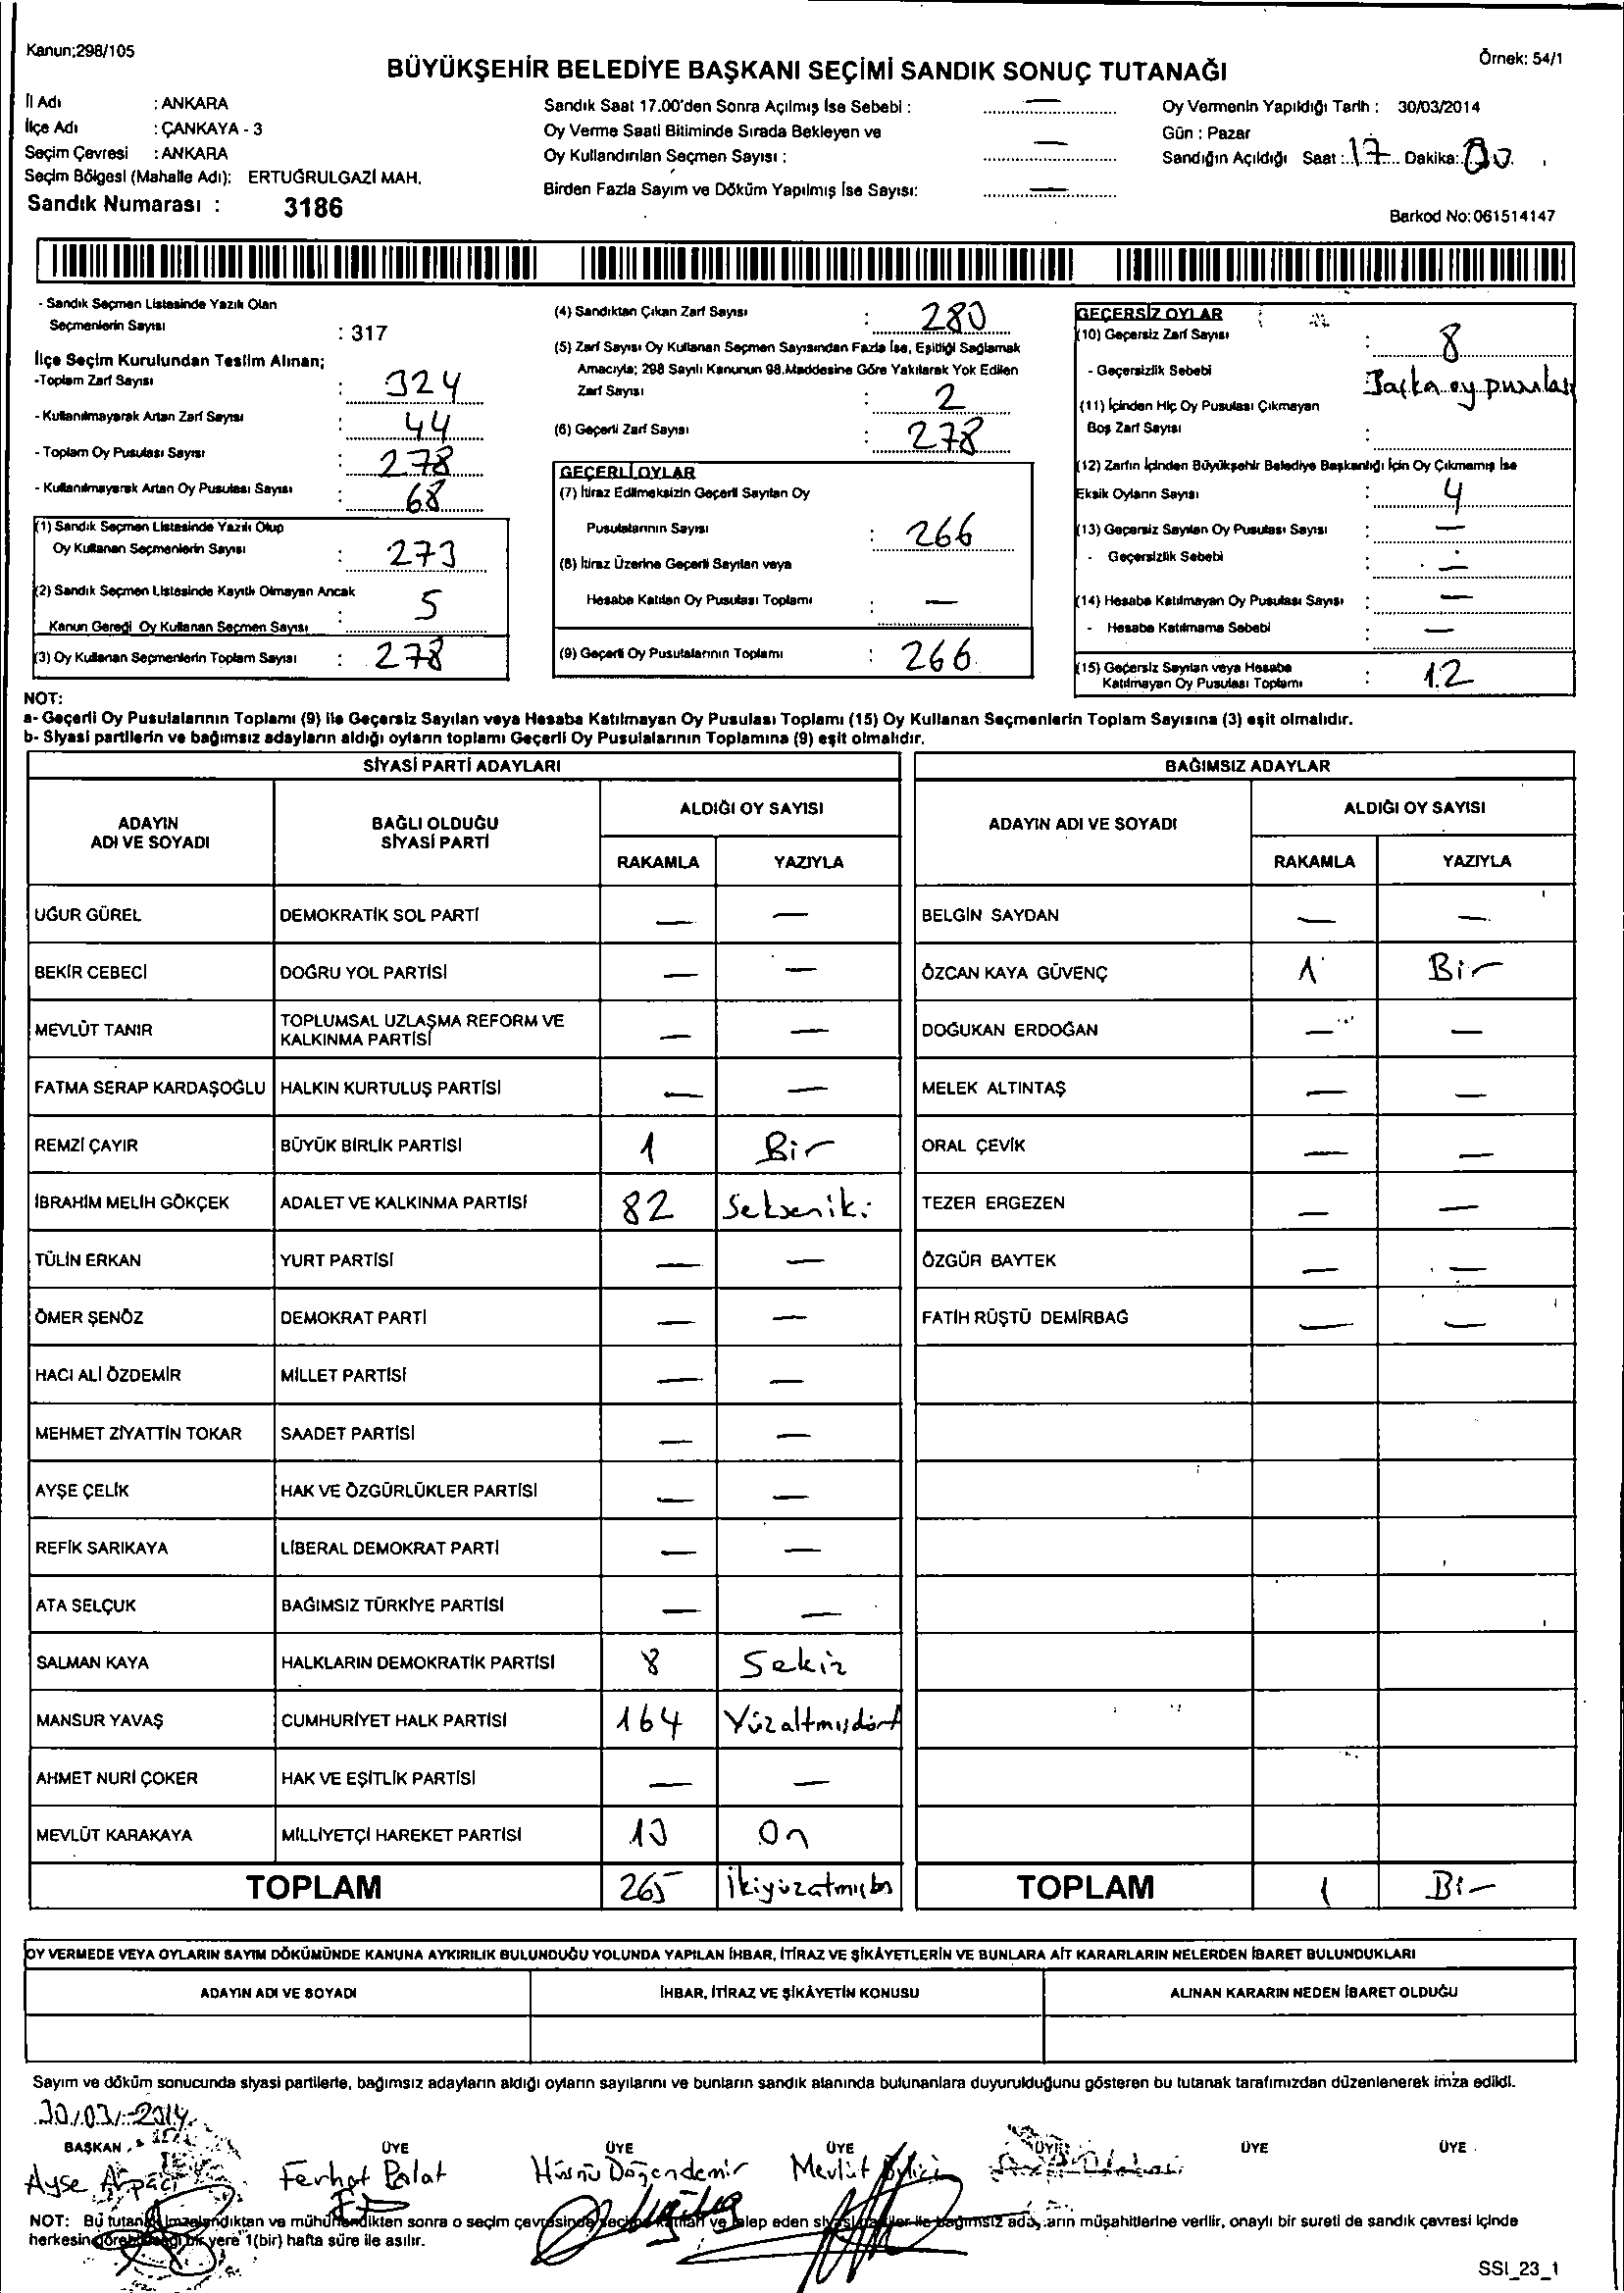 Kanun;298/105
Örnek: 54/1
BÜYÜKŞEHİR BELEDİYE BAŞKANI SEÇİMİ SANDIK SONUÇ TUTANAĞI
İl Adı : ANKARA
İlçe Adı : ÇANKAYA - 3
Seçim Çevresi : ANKARA
Seçim Bölgesi (Mahalle Adı): ERTUĞRULGAZİ MAH.
Sandık Numarası : 3186
Sandık Saat 17.00'den Sonra Açılmış İse Sebebi : —
Oy Verme Saati Bitiminde Sırada Bekleyen ve
Oy Kullandırılan Seçmen Sayısı : —
Birden Fazla Sayım ve Döküm Yapılmış İse Sayısı: —
Oy Vermenin Yapıldığı Tarih : 30/03/2014
Gün : Pazar
Sandığın Açıldığı Saat : 17 Dakika: 00
Barkod No: 061514147
- Sandık Seçmen Listesinde Yazılı Olan
Seçmenlerin Sayısı : 317
İlçe Seçim Kurulundan Teslim Alınan;
-Toplam Zarf Sayısı : 324
- Kullanılmayarak Artan Zarf Sayısı : 44
- Toplam Oy Pusulası Sayısı : 278
- Kullanılmayarak Artan Oy Pusulası Sayısı : 68
(1) Sandık Seçmen Listesinde Yazılı Olup
Oy Kullanan Seçmenlerin Sayısı : 273
(2) Sandık Seçmen Listesinde Kayıtlı Olmayan Ancak
Kanun Gereği Oy Kullanan Seçmen Sayısı : 5
(3) Oy Kullanan Seçmenlerin Toplam Sayısı : 278
(4) Sandıktan Çıkan Zarf Sayısı : 280
(5) Zarf Sayısı Oy Kullanan Seçmen Sayısından Fazla İse, Eşitliği Sağlamak
Amacıyla; 298 Sayılı Kanunun 98.Maddesine Göre Yakılarak Yok Edilen
Zarf Sayısı : 2
(6) Geçerli Zarf Sayısı : 278
GEÇERLİ OYLAR
(7) İtiraz Edilmeksizin Geçerli Sayılan Oy
Pusulalarının Sayısı : 266
(8) İtiraz Üzerine Geçerli Sayılan veya
Hesaba Katılan Oy Pusulası Toplamı : —
(9) Geçerli Oy Pusulalarının Toplamı : 266
GEÇERSİZ OYLAR
(10) Geçersiz Zarf Sayısı : 8
- Geçersizlik Sebebi : Başka oy pusulası
(11) İçinden Hiç Oy Pusulası Çıkmayan
Boş Zarf Sayısı :
(12) Zarfın İçinden Büyükşehir Belediye Başkanlığı İçin Oy Çıkmamış İse
Eksik Oyların Sayısı : 4
(13) Geçersiz Sayılan Oy Pusulası Sayısı : —
- Geçersizlik Sebebi : —
(14) Hesaba Katılmayan Oy Pusulası Sayısı : —
- Hesaba Katılmama Sebebi : —
(15) Geçersiz Sayılan veya Hesaba
Katılmayan Oy Pusulası Toplamı : 12
NOT:
a- Geçerli Oy Pusulalarının Toplamı (9) ile Geçersiz Sayılan veya Hesaba Katılmayan Oy Pusulası Toplamı (15) Oy Kullanan Seçmenlerin Toplam Sayısına (3) eşit olmalıdır.
b- Siyasi partilerin ve bağımsız adayların aldığı oyların toplamı Geçerli Oy Pusulalarının Toplamına (9) eşit olmalıdır.
SİYASİ PARTİ ADAYLARI
ADAYIN ADI VE SOYADI
BAĞLI OLDUĞU SİYASİ PARTİ
ALDIĞI OY SAYISI
RAKAMLA YAZIYLA
UĞUR GÜREL DEMOKRATİK SOL PARTİ — —
BEKİR CEBECİ DOĞRU YOL PARTİSİ — —
MEVLÜT TANIR TOPLUMSAL UZLAŞMA REFORM VE KALKINMA PARTİSİ — —
FATMA SERAP KARDAŞOĞLU HALKIN KURTULUŞ PARTİSİ — —
REMZİ ÇAYIR BÜYÜK BİRLİK PARTİSİ 1 Bir
İBRAHİM MELİH GÖKÇEK ADALET VE KALKINMA PARTİSİ 82 Sekseniki
TÜLİN ERKAN YURT PARTİSİ — —
ÖMER ŞENÖZ DEMOKRAT PARTİ — —
HACI ALİ ÖZDEMİR MİLLET PARTİSİ — —
MEHMET ZİYATTİN TOKAR SAADET PARTİSİ — —
AYŞE ÇELİK HAK VE ÖZGÜRLÜKLER PARTİSİ — —
REFİK SARIKAYA LİBERAL DEMOKRAT PARTİ — —
ATA SELÇUK BAĞIMSIZ TÜRKİYE PARTİSİ — —
SALMAN KAYA HALKLARIN DEMOKRATİK PARTİSİ 8 Sekiz
MANSUR YAVAŞ CUMHURİYET HALK PARTİSİ 164 Yüzaltmışdört
AHMET NURİ ÇOKER HAK VE EŞİTLİK PARTİSİ — —
MEVLÜT KARAKAYA MİLLİYETÇİ HAREKET PARTİSİ 10 On
TOPLAM 265 İkiyüzatmışbş
BAĞIMSIZ ADAYLAR
ADAYIN ADI VE SOYADI
ALDIĞI OY SAYISI
RAKAMLA YAZIYLA
BELGİN SAYDAN — —
ÖZCAN KAYA GÜVENÇ 1 Bir
DOĞUKAN ERDOĞAN — —
MELEK ALTINTAŞ — —
ORAL ÇEVİK — —
TEZER ERGEZEN — —
ÖZGÜR BAYTEK — —
FATİH RÜŞTÜ DEMİRBAĞ — —
TOPLAM 1 Bir
OY VERMEDE VEYA OYLARIN SAYIM DÖKÜMÜNDE KANUNA AYKIRILIK BULUNDUĞU YOLUNDA YAPILAN İHBAR, İTİRAZ VE ŞİKÂYETLERİN VE BUNLARA AİT KARARLARIN NELERDEN İBARET BULUNDUKLARI
ADAYIN ADI VE SOYADI İHBAR, İTİRAZ VE ŞİKÂYETİN KONUSU ALINAN KARARIN NEDEN İBARET OLDUĞU
Sayım ve döküm sonucunda siyasi partilerle, bağımsız adayların aldığı oyların sayılarını ve bunların sandık alanında bulunanlara duyurulduğunu gösteren bu tutanak tarafımızdan düzenlenerek imza edildi.
30/03/2014
BAŞKAN ÜYE ÜYE ÜYE ÜYE ÜYE ÜYE
Ayşe Arpacı Ferhat Polat Hüsnü Doğandemir Mevlüt
NOT: Bu tutanak imzalandıktan ve mühürlendikten sonra o seçim çevresinde seçime katılan ve talep eden siyasi partiler ile bağımsız adayların müşahitlerine verilir, onaylı bir sureti de sandık çevresi içinde
herkesin görebileceği bir yere 1(bir) hafta süre ile asılır.
SSI_23_1